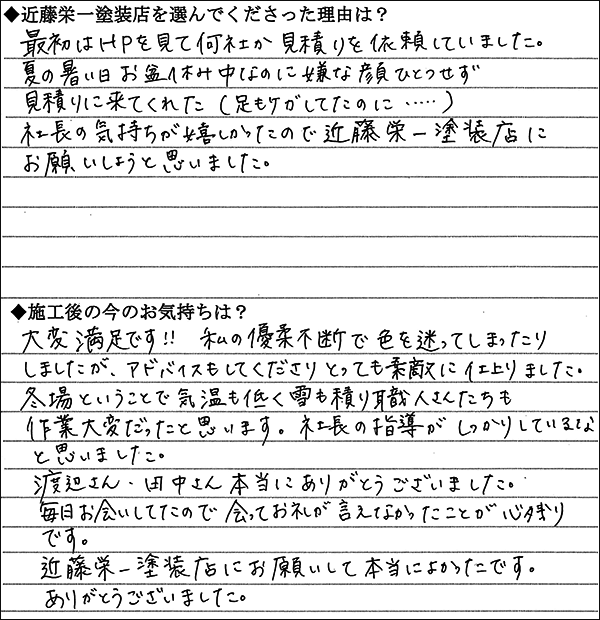 ◆近藤栄一塗装店を選んでくださった理由は？
最初はHPを見て何社か見積りを依頼していました。
夏の暑い日お盆休み中なのに嫌な顔ひとつせず
見積りに来てくれた（足もケガしてたのに……）
社長の気持ちが嬉しかったので近藤栄一塗装店に
お願いしようと思いました。
◆施工後の今のお気持ちは？
大変満足です!! 私の優柔不断で色を迷ってしまったり
しましたが、アドバイスもしてくださりとっても素敵に仕上りました。
冬場ということで気温も低く雪も積り職人さんたちも
作業大変だったと思います。社長の指導がしっかりしているな
と思いました。
渡辺さん・田中さん本当にありがとうございました。
毎日お会いしてたので会ってお礼が言えなかったことが心残り
です。
近藤栄一塗装店にお願いして本当によかったです。
ありがとうございました。